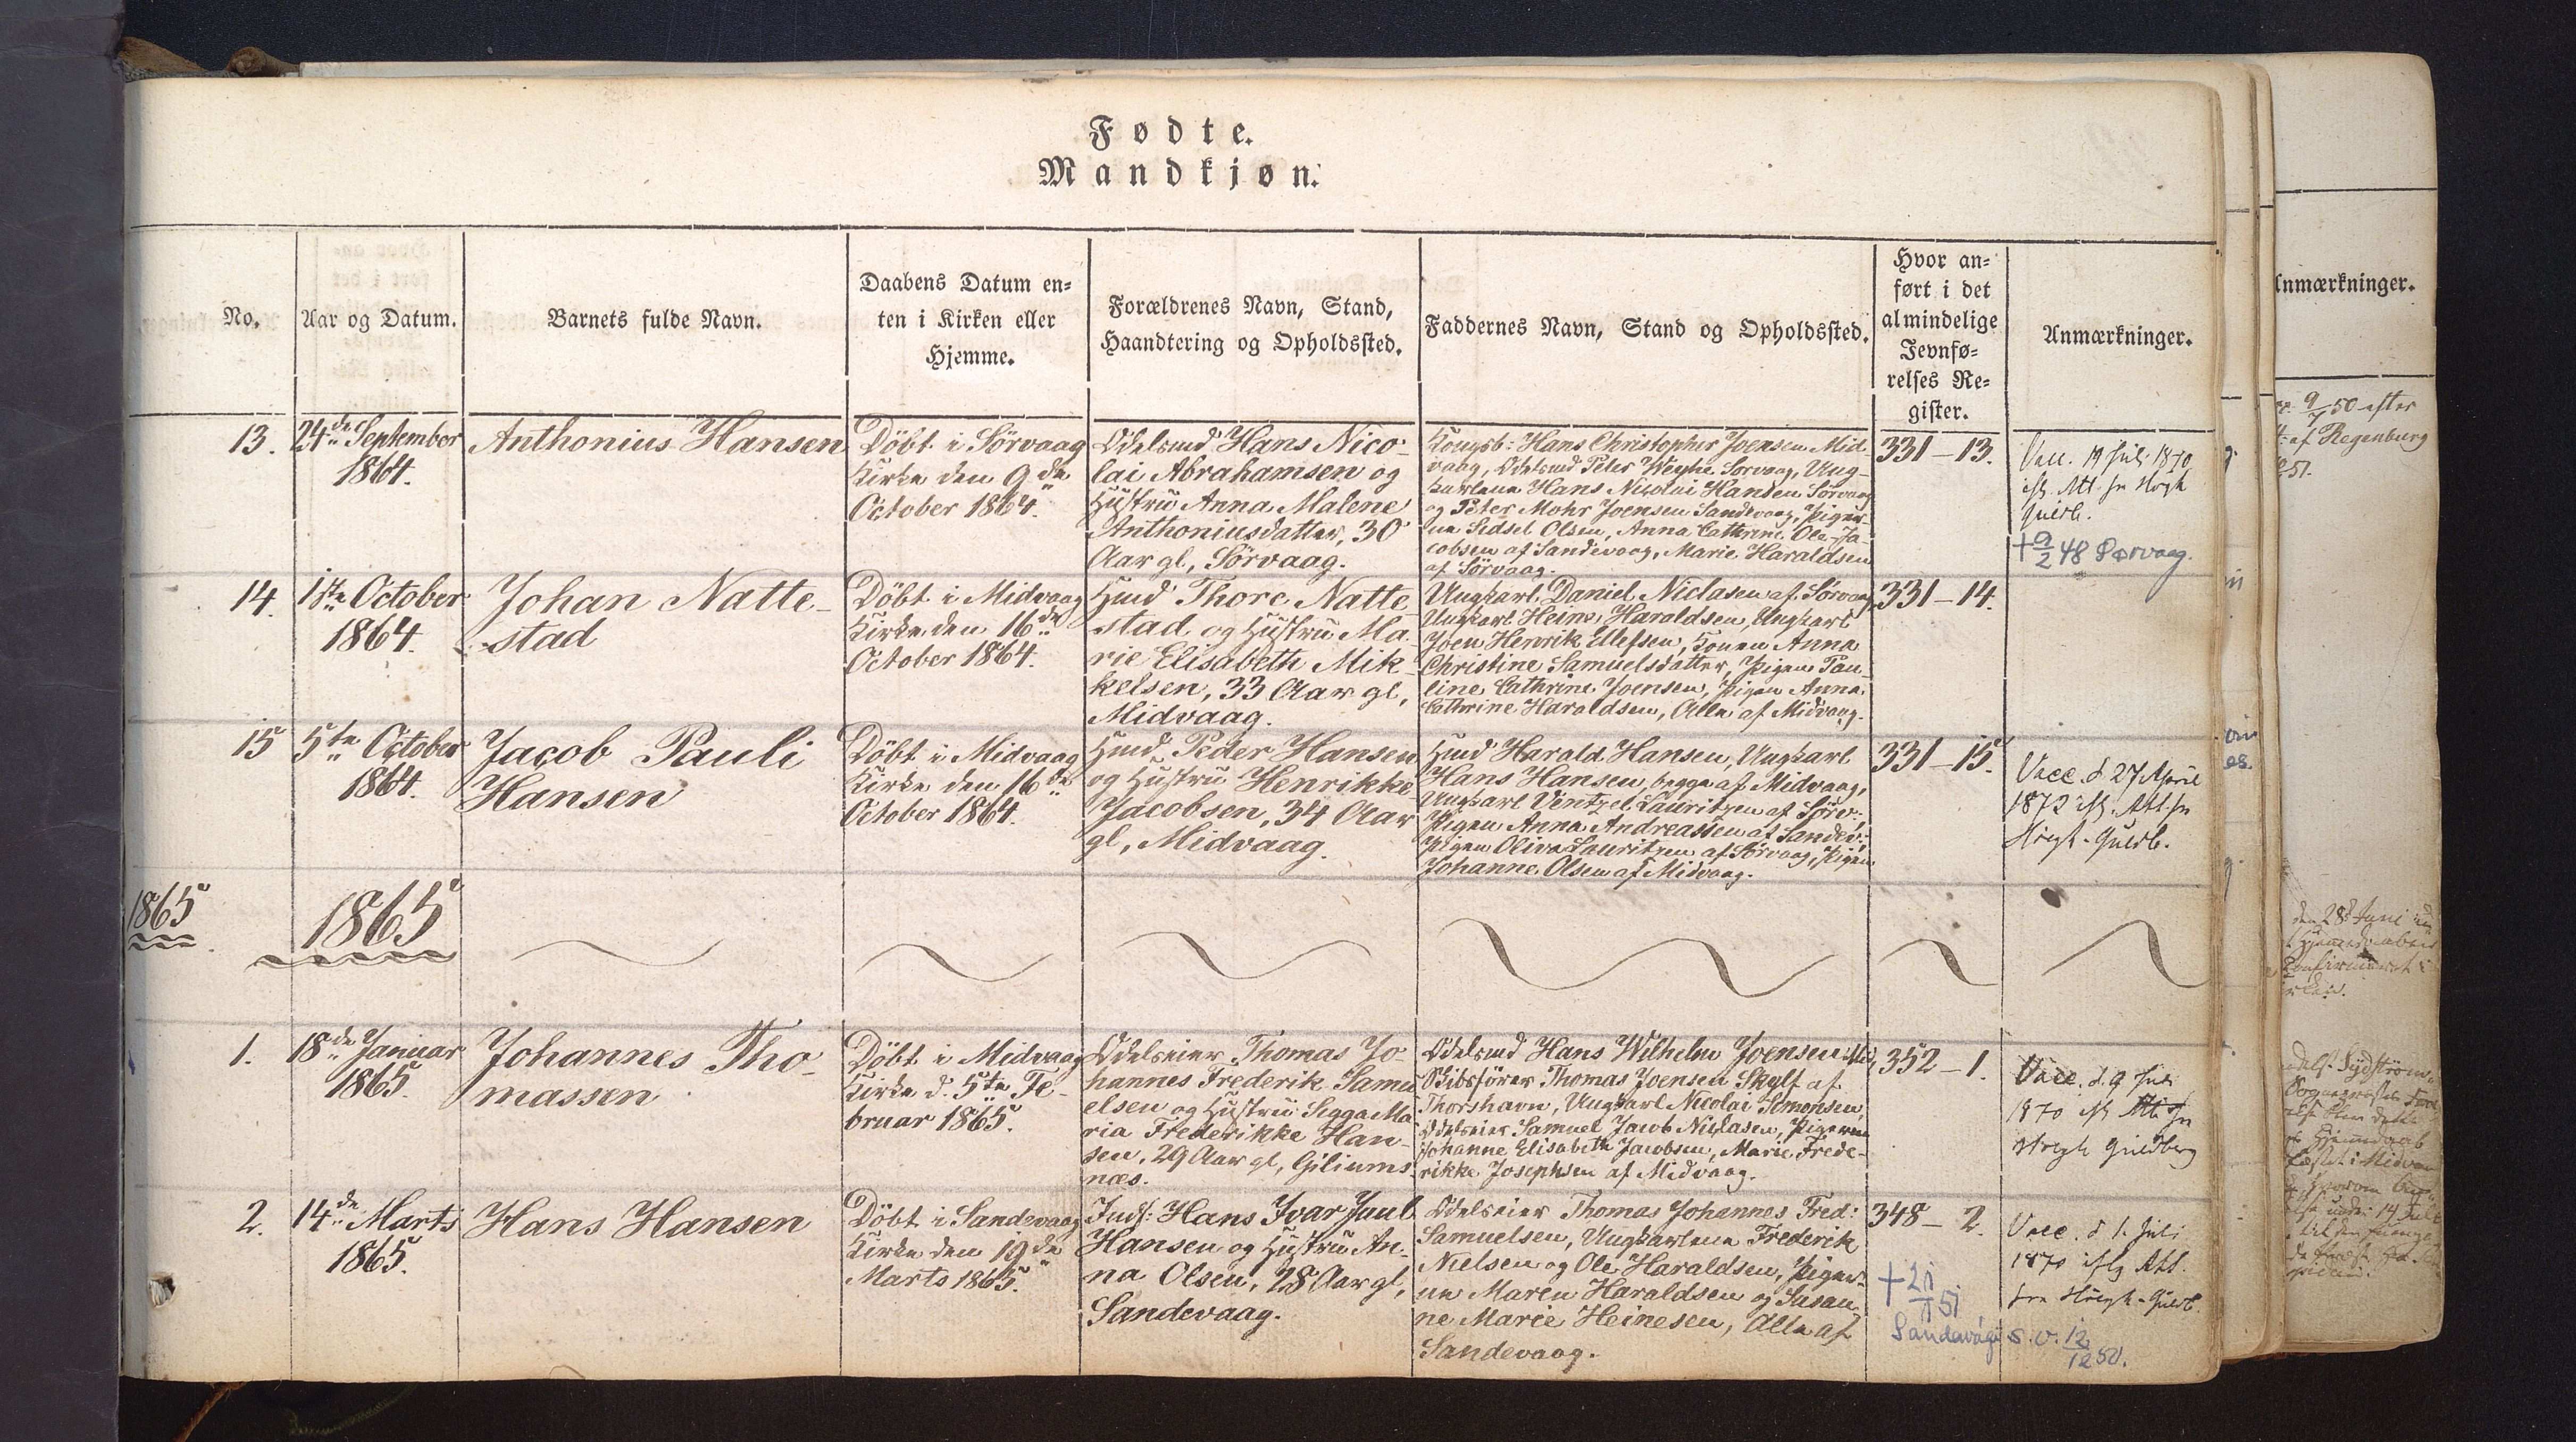 Fødte.
Mandkjøn.
No.
Aar og Datum.
Barnets fulde Navn.
Daabens Datum en-
ten i Kirken eller
Hjemme.
Forældrenes Navn, Stand,
Haandtering og Opholdssted.
Faddernes Navn, Stand og Opholdssted.
Hvor an-
ført i det
almindelige
Jevnfø-
relses Re-
gister.
Anmærkninger.
13.
24de September
1864.
Anthonius Hansen
Döbt i Sörvaag
Kirke den 9de
October 1864.
Odelsmd Hans Nico-
lai Abrahamsen og
Hustru Anna Malene
Anthoniusdatter, 30
Aar gl, Sörvaag.
Kongsb: Hans Christopher Joensen Mid-
vaag, Odelsmd Peter Weyhe Sørvaag, Ung-
karlene Hans Nicolai Hansen Sörvaag
og Peter Mohr Joensen Sandevaag, Piger-
ne Sidsel Olsen, Anna Cathrine Ole Ja-
cobsen af Sandevaag, Marie Haraldsen
af Sörvaag.
331-13.
Vacc. 19 Juli 1870
ifl. Att. fr Høgh
Guldb.
+ 9/2 48 Sørvaag.
14.
1ste October
1864.
Johan Natte-
stad
Döbt i Midvaag
Kirke den 16de
October 1864.
Hmd Thore Natte-
stad og Hustru Ma-
rie Elisabeth Mik-
kelsen, 33 Aar gl,
Midvaag.
Ungkarl Daniel Niclasen af Sörvaag
Ungkarl Heine Haraldsen, Ungkarl
Joen Henrik Ellefsen, Konen Anna
Christine Samuelsdatter, Pigen Pau-
line Cathrine Joensen, Pigen Anna
Cathrine Haraldsen, Alle af Midvaag.
331-14.
15
5te October
1864.
Jacob Pauli
Hansen
Döbt i Midvaag
Kirke den 16de
October 1864.
Hmd Peder Hansen
og Hustru Henrikke
Jacobsen, 34 Aar
gl, Midvaag.
Hmd Harald Hansen, Ungkarl
Hans Hansen, begge af Midvaag,
Ungkarl Ventzel Lauritzen af Sörv:,
Pigen Anna Andreassen af Sandev:,
Pigen Oliva Lauritzen af Sörvaag, Pigen
Johanne Olsen af Midvaag.
331-15.
Vacc. d. 27 April
1872 ifl. Att. fr
Høegh-Guldb.
1865
1865
1.
18de Januar
1865.
Johannes Tho-
massen
Döbt i Midvaag
Kirke d. 5te Fe-
bruar 1865.
Odelseier Thomas Jo-
hannes Frederik Samu-
elsen og Hustru Sigga Ma-
ria Frederikke Han-
sen, 29 Aar gl, Giliums-
næs.
Odelsmd Hans Wilhelm Joensen
Skibsfører Thomas Joensen Skylf af
Thorshavn, Ungkarl Nicolai Simonsen,
Odelseier Samuel Jacob Niclasen, Pigerne
Johanne Elisabeth Jacobsen, Marie Frede-
rikke Josephsen af Midvaag.
352-1.
Vacc. d. 9 Juli
1870 ifl. Att. fr
Høegh Guldberg
2.
14de Marts
1865.
Hans Hansen
Döbt i Sandevaag
Kirke den 19de
Marts 1865.
Inds: Hans Ivar Juul
Hansen og Hustru An-
na Olsen, 28 Aar gl,
Sandevaag.
Odelseier Thomas Johannes Fred:
Samuelsen, Ungkarlene Frederik
Nielsen og Ole Haraldsen, Piger-
ne Maren Haraldsen og Susan-
ne Marie Heinesen, Alle af
Sandevaag.
348-2.
+ 21/11 51
Sandavági s.v. 12/12 50.
Vacc. d 1. Juli
1870 iflg Att.
fra Høegh-Guldb.
Anmærkninger.
9/7 50 efter
af Regenburg
51.
den 28d Juni